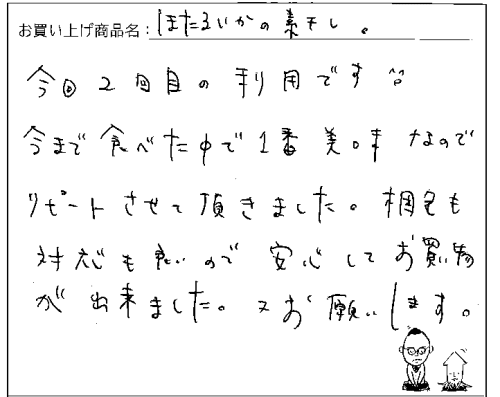 お買い上げ商品名:ほたるいかの素干し。
今回2回目の利用です^^
今まで食べた中で1番美味なので
リピートさせて頂きました。梱包も
対応も良いので安心してお買物
が出来ました。又お願いします。